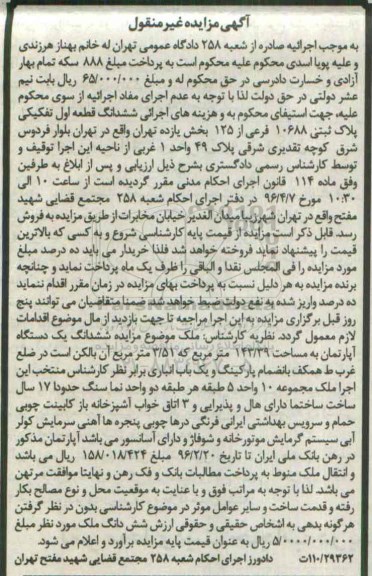 آگهی مزایده غیر منقول
به موجب اجرائیه صادره از شعبه ۲۵۸ دادگاه عمومی تهران له خانم بهناز هرزندی
و علیه پویا اسدی محکوم علیه محکوم است به پرداخت مبلغ ۸۸۸ سکه تمام بهار
آزادی و خسارت دادرسی در حق محکوم له و مبلغ ۶۵/۰۰۰/۰۰۰ ریال بابت نیم
عشر دولتی در حق دولت لذا با توجه به عدم اجرای مفاد اجرائیه از سوی محکوم
علیه، جهت استیفای محکوم به و هزینه های اجرائی ششدانگ قطعه اول تفکیکی
پلاک ثبتی ۱۰۶۸۸ فرعی از ۱۲۵ بخش یازده تهران واقع در تهران بلوار فردوس
شرق کوچه تقدیری شرقی پلاک ۴۹ واحد ۱ غربی از ناحیه این اجرا توقیف و
توسط کارشناس رسمی دادگستری بشرح ذیل ارزیابی و پس از ابلاغ به طرفین
وفق ماده ۱۱۴ قانون اجرای احکام مدنی مقرر گردیده است از ساعت ۱۰ الی
۱۰:۳۰ مورخ ۹۶/۴/۷ در دفتر اجرای احکام شعبه ۲۵۸ مجتمع قضایی شهید
مفتح واقع در تهران شهرزیبا میدان الغدیر خیابان مخابرات از طریق مزایده به فروش
رسد، قابل ذکر است مزایده از قیمت پایه کارشناسی شروع و به کسی که بالاترین
قیمت را پیشنهاد نماید فروخته خواهد شد فلذا خریدار می باید ده درصد مبلغ
مورد مزایده را فی المجلس نقدا و الباقی را ظرف یک ماه پرداخت نماید و چنانچه
برنده مزایده به هر دلیل نسبت به پرداخت بهای مزایده در زمان مقرر اقدام ننماید
ده درصد واریز شده به نفع دولت ضبط خواهد شد ضمنا متقاضیان می توانند پنج
روز قبل برگزاری مزایده به این اجرا مراجعه تا جهت بازدید از مال موضوع اقدامات
لازم معمول گردد. نظریه کارشناس: ملک موضوع مزایده ششدانگ یک دستگاه
آپارتمان به مساحت ۱۴۲/۳۹ متر مربع که ۳/۵۱ متر مربع آن بالکن است در ضلع
غرب ط همکف بانضمام پارکینگ و یک باب انباری برابر نظر کارشناس منتخب این
اجرا ملک مجموعه ۱۰ واحد ۵ طبقه هر طبقه دو واحد نما سنگ حدودا ۱۷ سال
ساخت ساختما دارای هال و پذیرایی و ۳ اتاق خواب آشپزخانه باز کابینت چوبی
حمام و سرویس بهداشتی ایرانی فرنگی درها چوبی پنجره ها آهنی سرمایش کولر
آبی سیستم گرمایش موتورخانه و شوفاژ و دارای آسانسور می باشد آپارتمان مذکور
در رهن بانک ملی ایران تا تاریخ ۹۶/۲/۲۰ مبلغ ۱۵۸/۰۱۸/۴۲۴ ریال می باشد
و انتقال ملک منوط به پرداخت مطالبات بانک و فک رهن و نهایتا موافقت مرتهن
می باشد. لذا با توجه به مراتب فوق و با عنایت به موقعیت محل و نوع مصالح بکار
رفته و قدمت ساخت و سایر عوامل موثر در موضوع کارشناسی بدون در نظر گرفتن
هرگونه بدهی به اشخاص حقیقی و حقوقی ارزش شش دانگ ملک مورد نظر مبلغ
۵/۰۰۰۰/۰۰۰/۰۰۰ ریال به عنوان قیمت پایه مزایده برآورد و اعلام می شود.
۱۱۰/۲۹۳۶۲ت دادورز اجرای احکام شعبه ۲۵۸ مجتمع قضایی شهید مفتح تهران